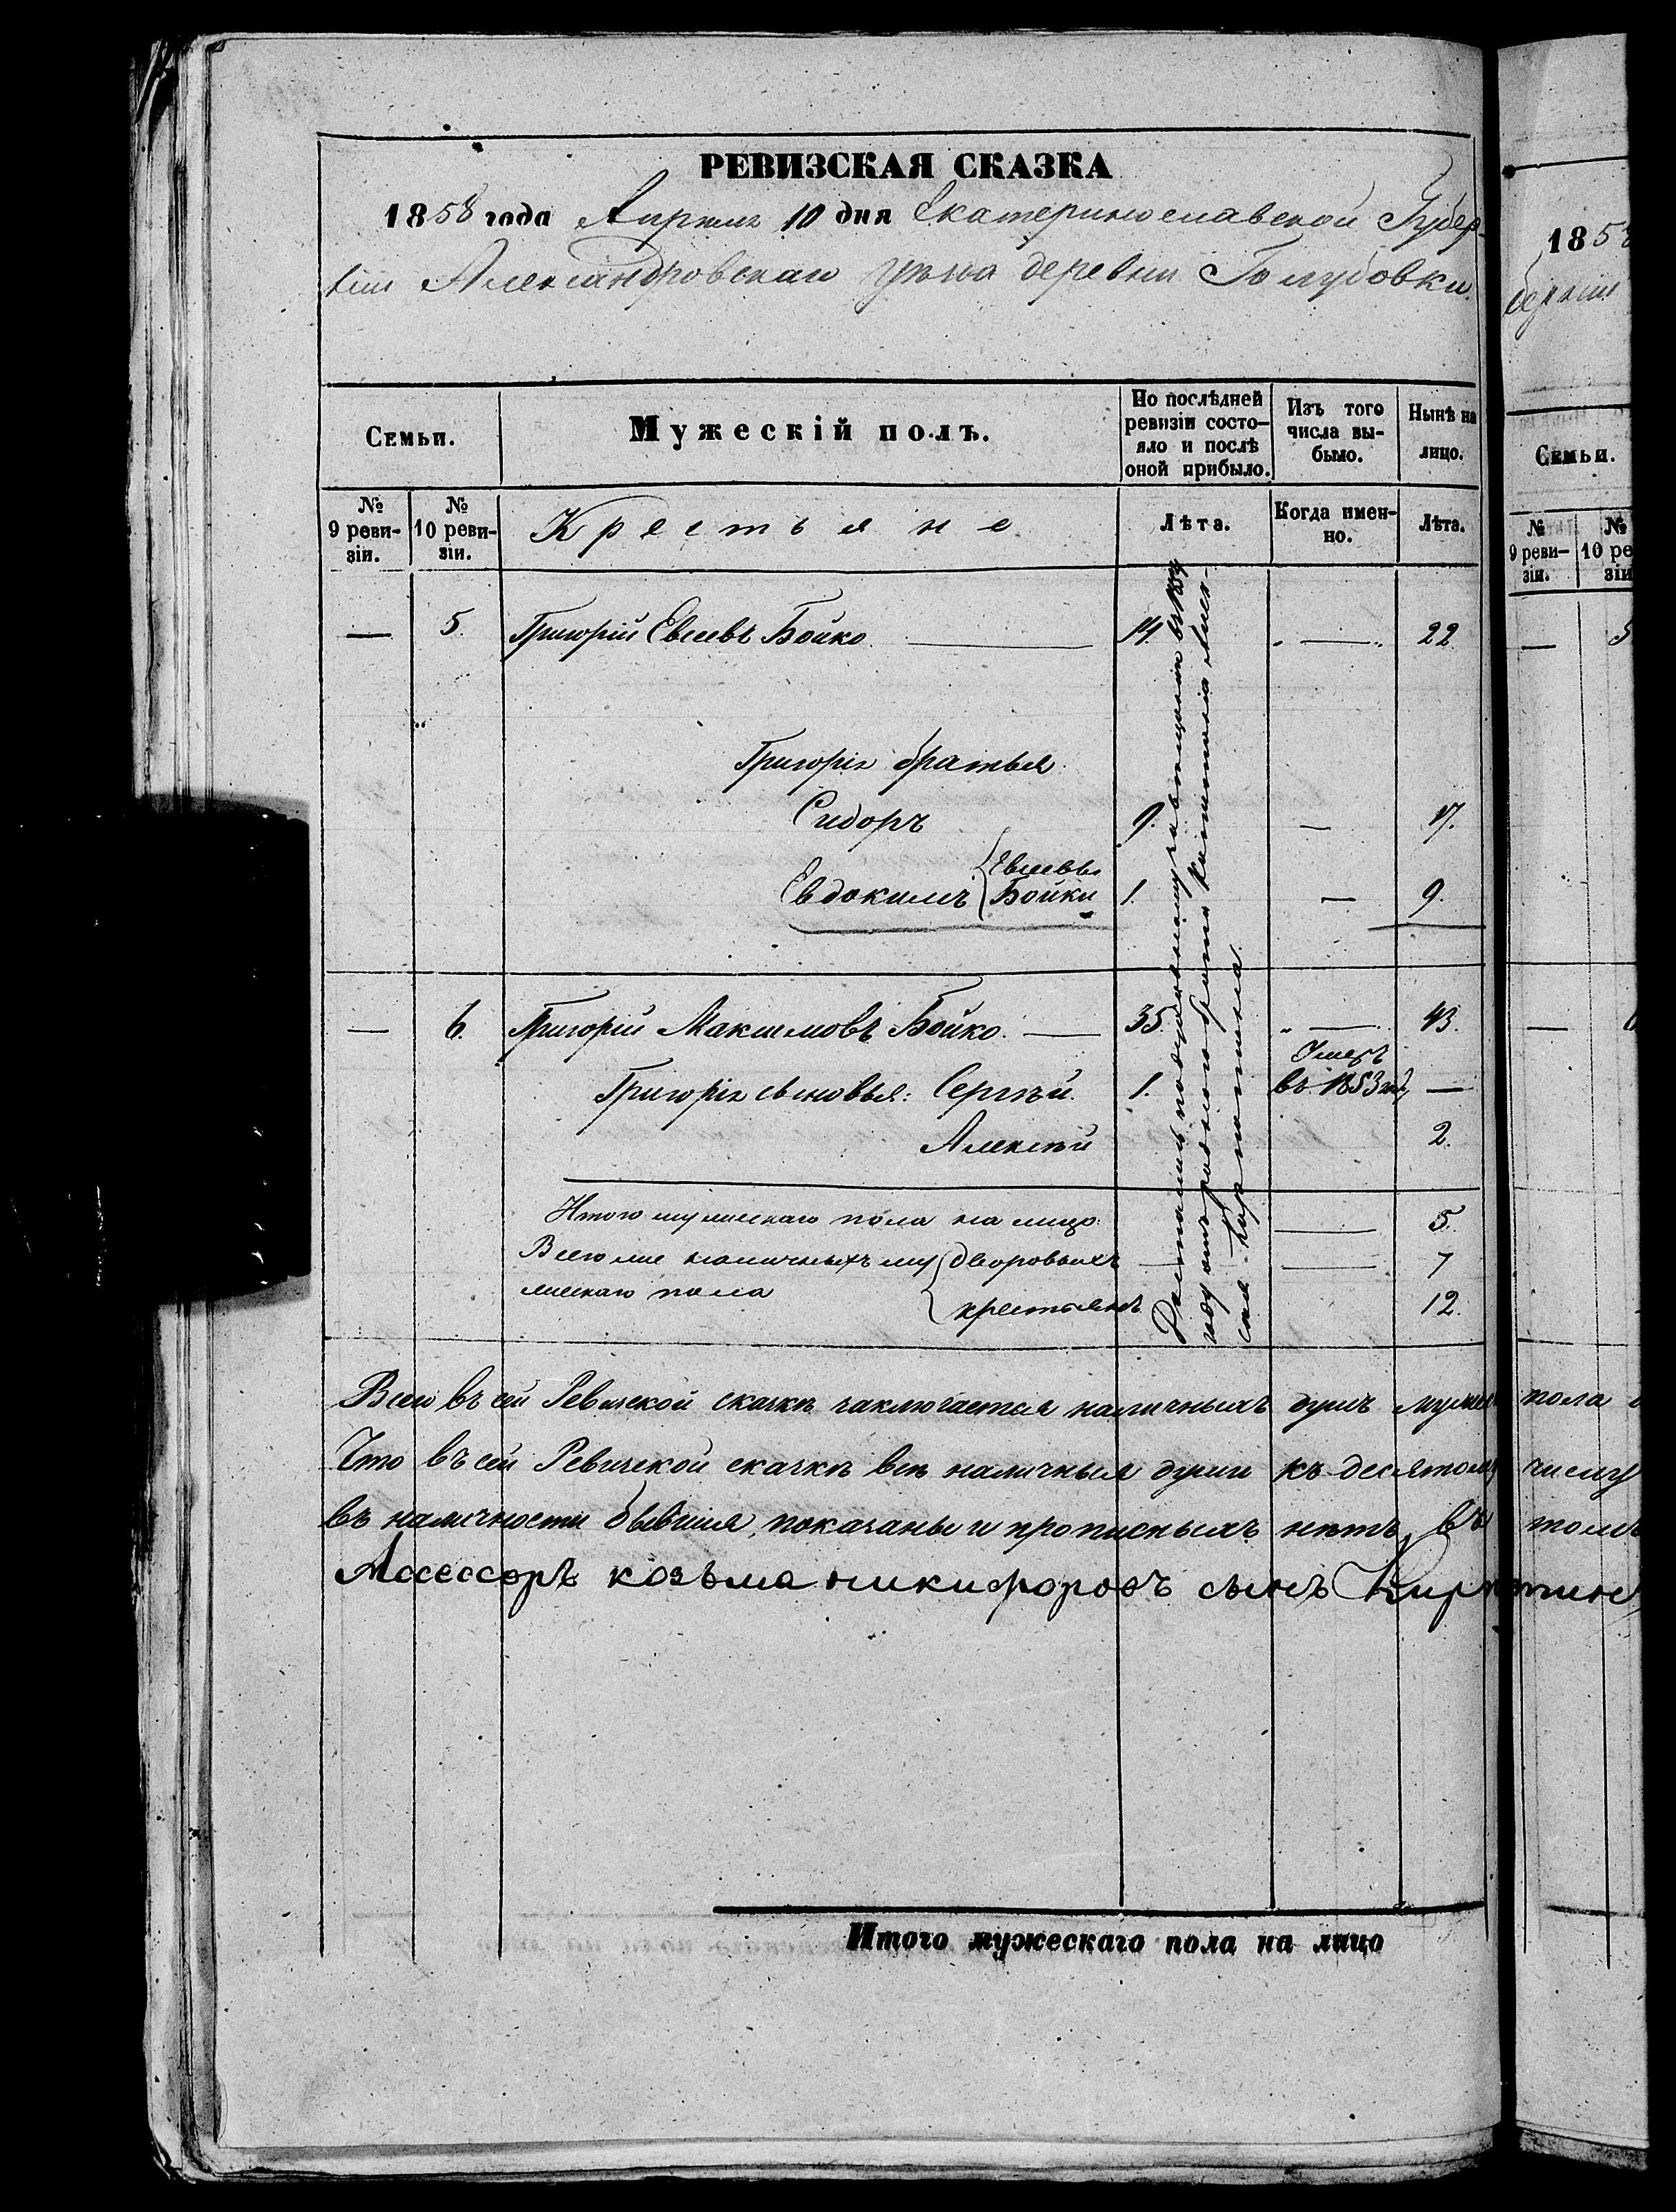 РЕВИЗСКАЯ СКАЗКА
1858 года Апреля 10 дня Екатеринославской Губер-
ніи Александровскаго уѣзда деревни Голубовки.
Семьи.
Мужескій полъ.
По послѣдней ревизіи состо-
яло и послѣ оной прибыло.
Изъ того числа вы-
было.
Нынѣ на лицо.
№ 9 реви-
зіи.
№ 10 реви-
зіи.
Крестьяне
Лѣта.
Когда имен-
но.
Лѣта.
— 5. Григорій Евсеевъ Бойко 14. — 22.
Григорія братья
Сидоръ 9. — 17.
Евдокимъ {Евсеевы Бойки 1. — 9.
— 6. Григорій Максимовъ Бойко. 35. — 43.
Григорія сыновья: Сергѣй. 1. Умеръ въ 1853 году —
Алексѣй 2.
Достались по раздѣльному
году отъ роднаго брата
Итого мужескаго пола на лицо. — 5.
Всего же наличныхъ му {дворовыхъ — — 7
жескаго пола {крестьянъ 12.
Всего въ сей Ревизской сказкѣ заключается наличныхъ душъ мужеск пола
Что въ сей Ревизской сказкѣ всѣ наличныя души къ десятому числу
въ наличности бывшия, показаны и прописныхъ нѣтъ, въ томъ
Ассессоръ козьма никифоровъ сынъ
Итого мужескаго пола на лицо
1858
Семьи.
№ 9 реви-
зіи.
№ 10 ре
зіи
— 5
—